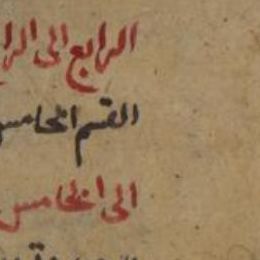 الرابع الى الرا
القسم الخامس
الى الخامس